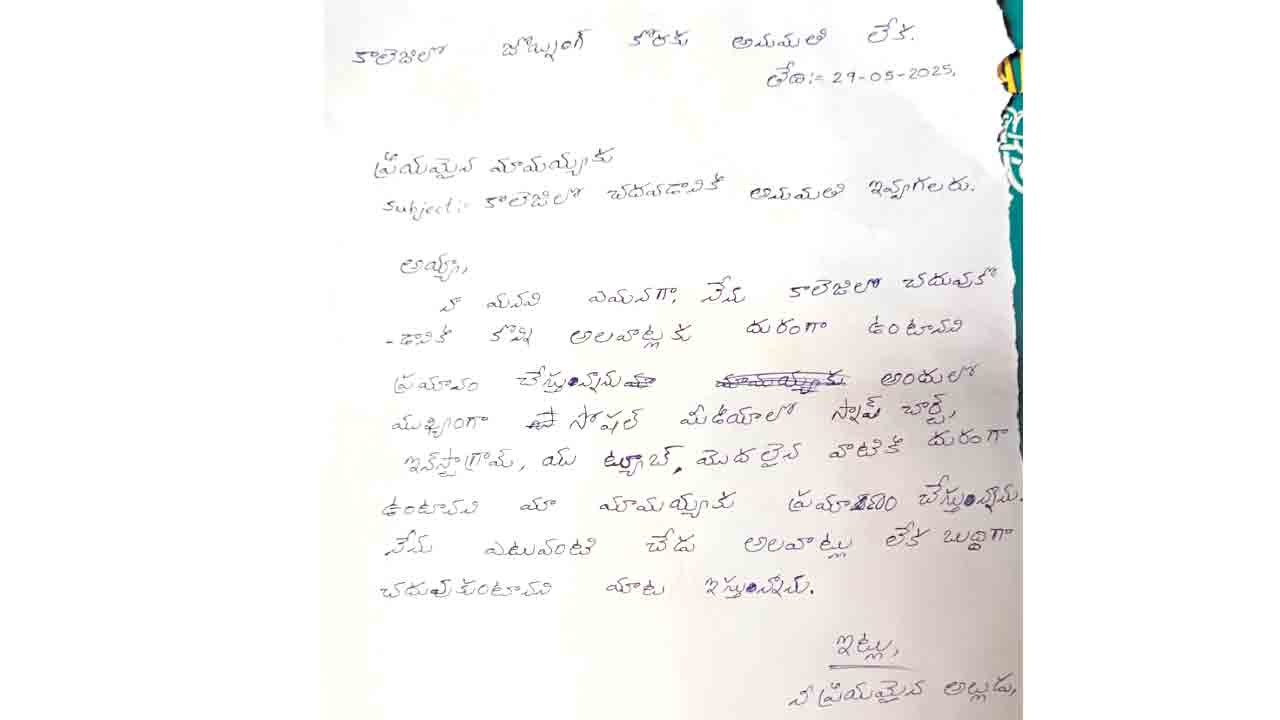 కాలెజిలో జాబ్నుంగ్ కొరకు అనుమతి లేక.
తేది:- 29-05-2025,
ప్రియమైన మామయ్యకు
Subject:- కాలెజిలో చదవడానికి అనుమతి ఇవ్వగలరు.
అయ్యా,
నా మనవి ఎమనగా, నేను కాలెజిలో చదువుకో
-డానికి కొన్ని అలవాట్లకు దురంగా ఉంటానని
ప్రమానం చేస్తున్నాను అందులో
ముఖ్యంగా సోషల్ మీడియాలో స్నాప్ చార్ట్,
ఇన్‌స్టాగ్రామ్, యు ట్యూబ్, మొదలైన వాటికి దురంగా
ఉంటానని మా మామయ్యకు ప్రమాణం చేస్తున్నాను.
నేను ఎటువంటి చేడు అలవాట్లు లేక బుద్ధిగా
చదువుకుంటానని మాట ఇస్తున్నాను.
ఇట్లు,
నీ ప్రియమైన అల్లుడు,